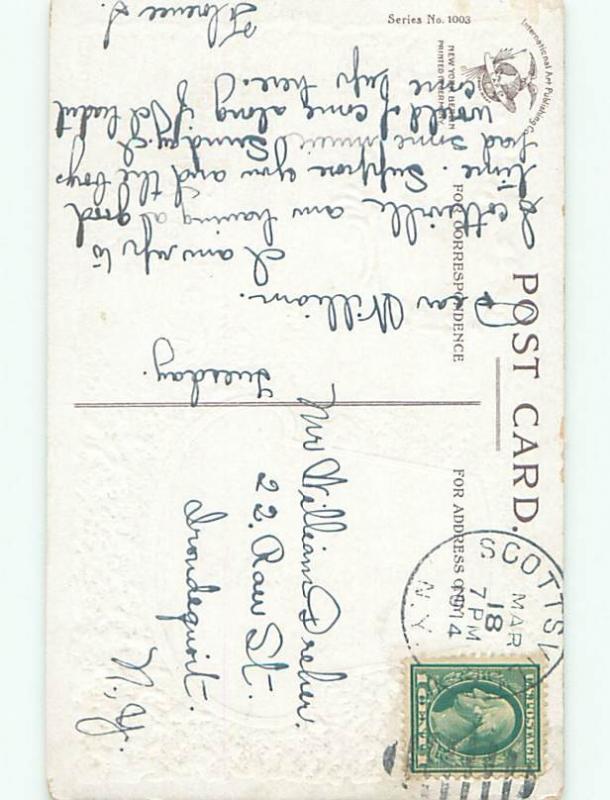 POST CARD.
FOR CORRESPONDENCE
FOR ADDRESS ONLY
Series No. 1003
International Art Publishing Co.
NEW YORK BERLIN
PRINTED IN GERMANY
Tuesday.
Dear William.
I am up to
Scottsville am having a good
time. Suppose you and the boys
had some music Sunday. I
would of come along if I let
come up here.
Florence S.
Mr William Dreher.
22. Raw St.
Irondequoit.
N.Y.
SCOTTSV
MAR
18
7 PM
1914
N.Y.
U.S. POSTAGE
1 CENT 1